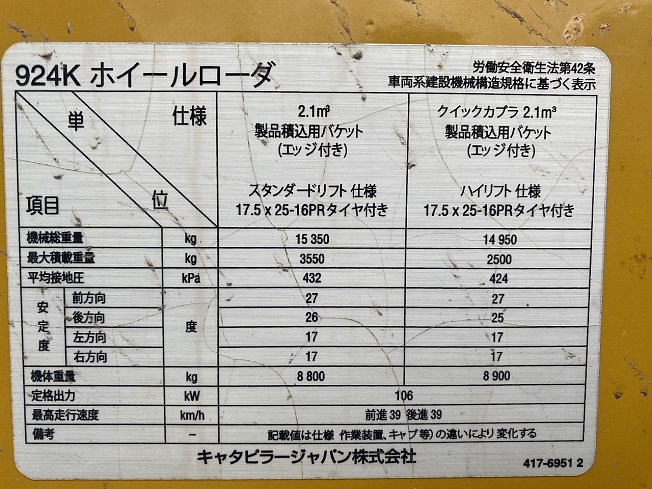 924K ホイールローダ
労働安全衛生法第42条
車両系建設機械構造規格に基づく表示
単 仕様
位
項目
2.1m³
製品積込用バケット
(エッジ付き)
スタンダードリフト 仕様
17.5 x 25-16PRタイヤ付き
クイックカプラ 2.1m³
製品積込用バケット
(エッジ付き)
ハイリフト 仕様
17.5 x 25-16PRタイヤ付き
機械総重量 kg 15 350 14 950
最大積載重量 kg 3550 2500
平均接地圧 kPa 432 424
安定度 前方向 度 27 27
後方向 26 25
左方向 17 17
右方向 17 17
機体重量 kg 8 800 8 900
定格出力 kW 106
最高走行速度 km/h 前進 39 後進 39
備考 – 記載値は仕様 作業装置、キャブ等)の違いにより変化する
キャタピラージャパン株式会社
417-6951 2